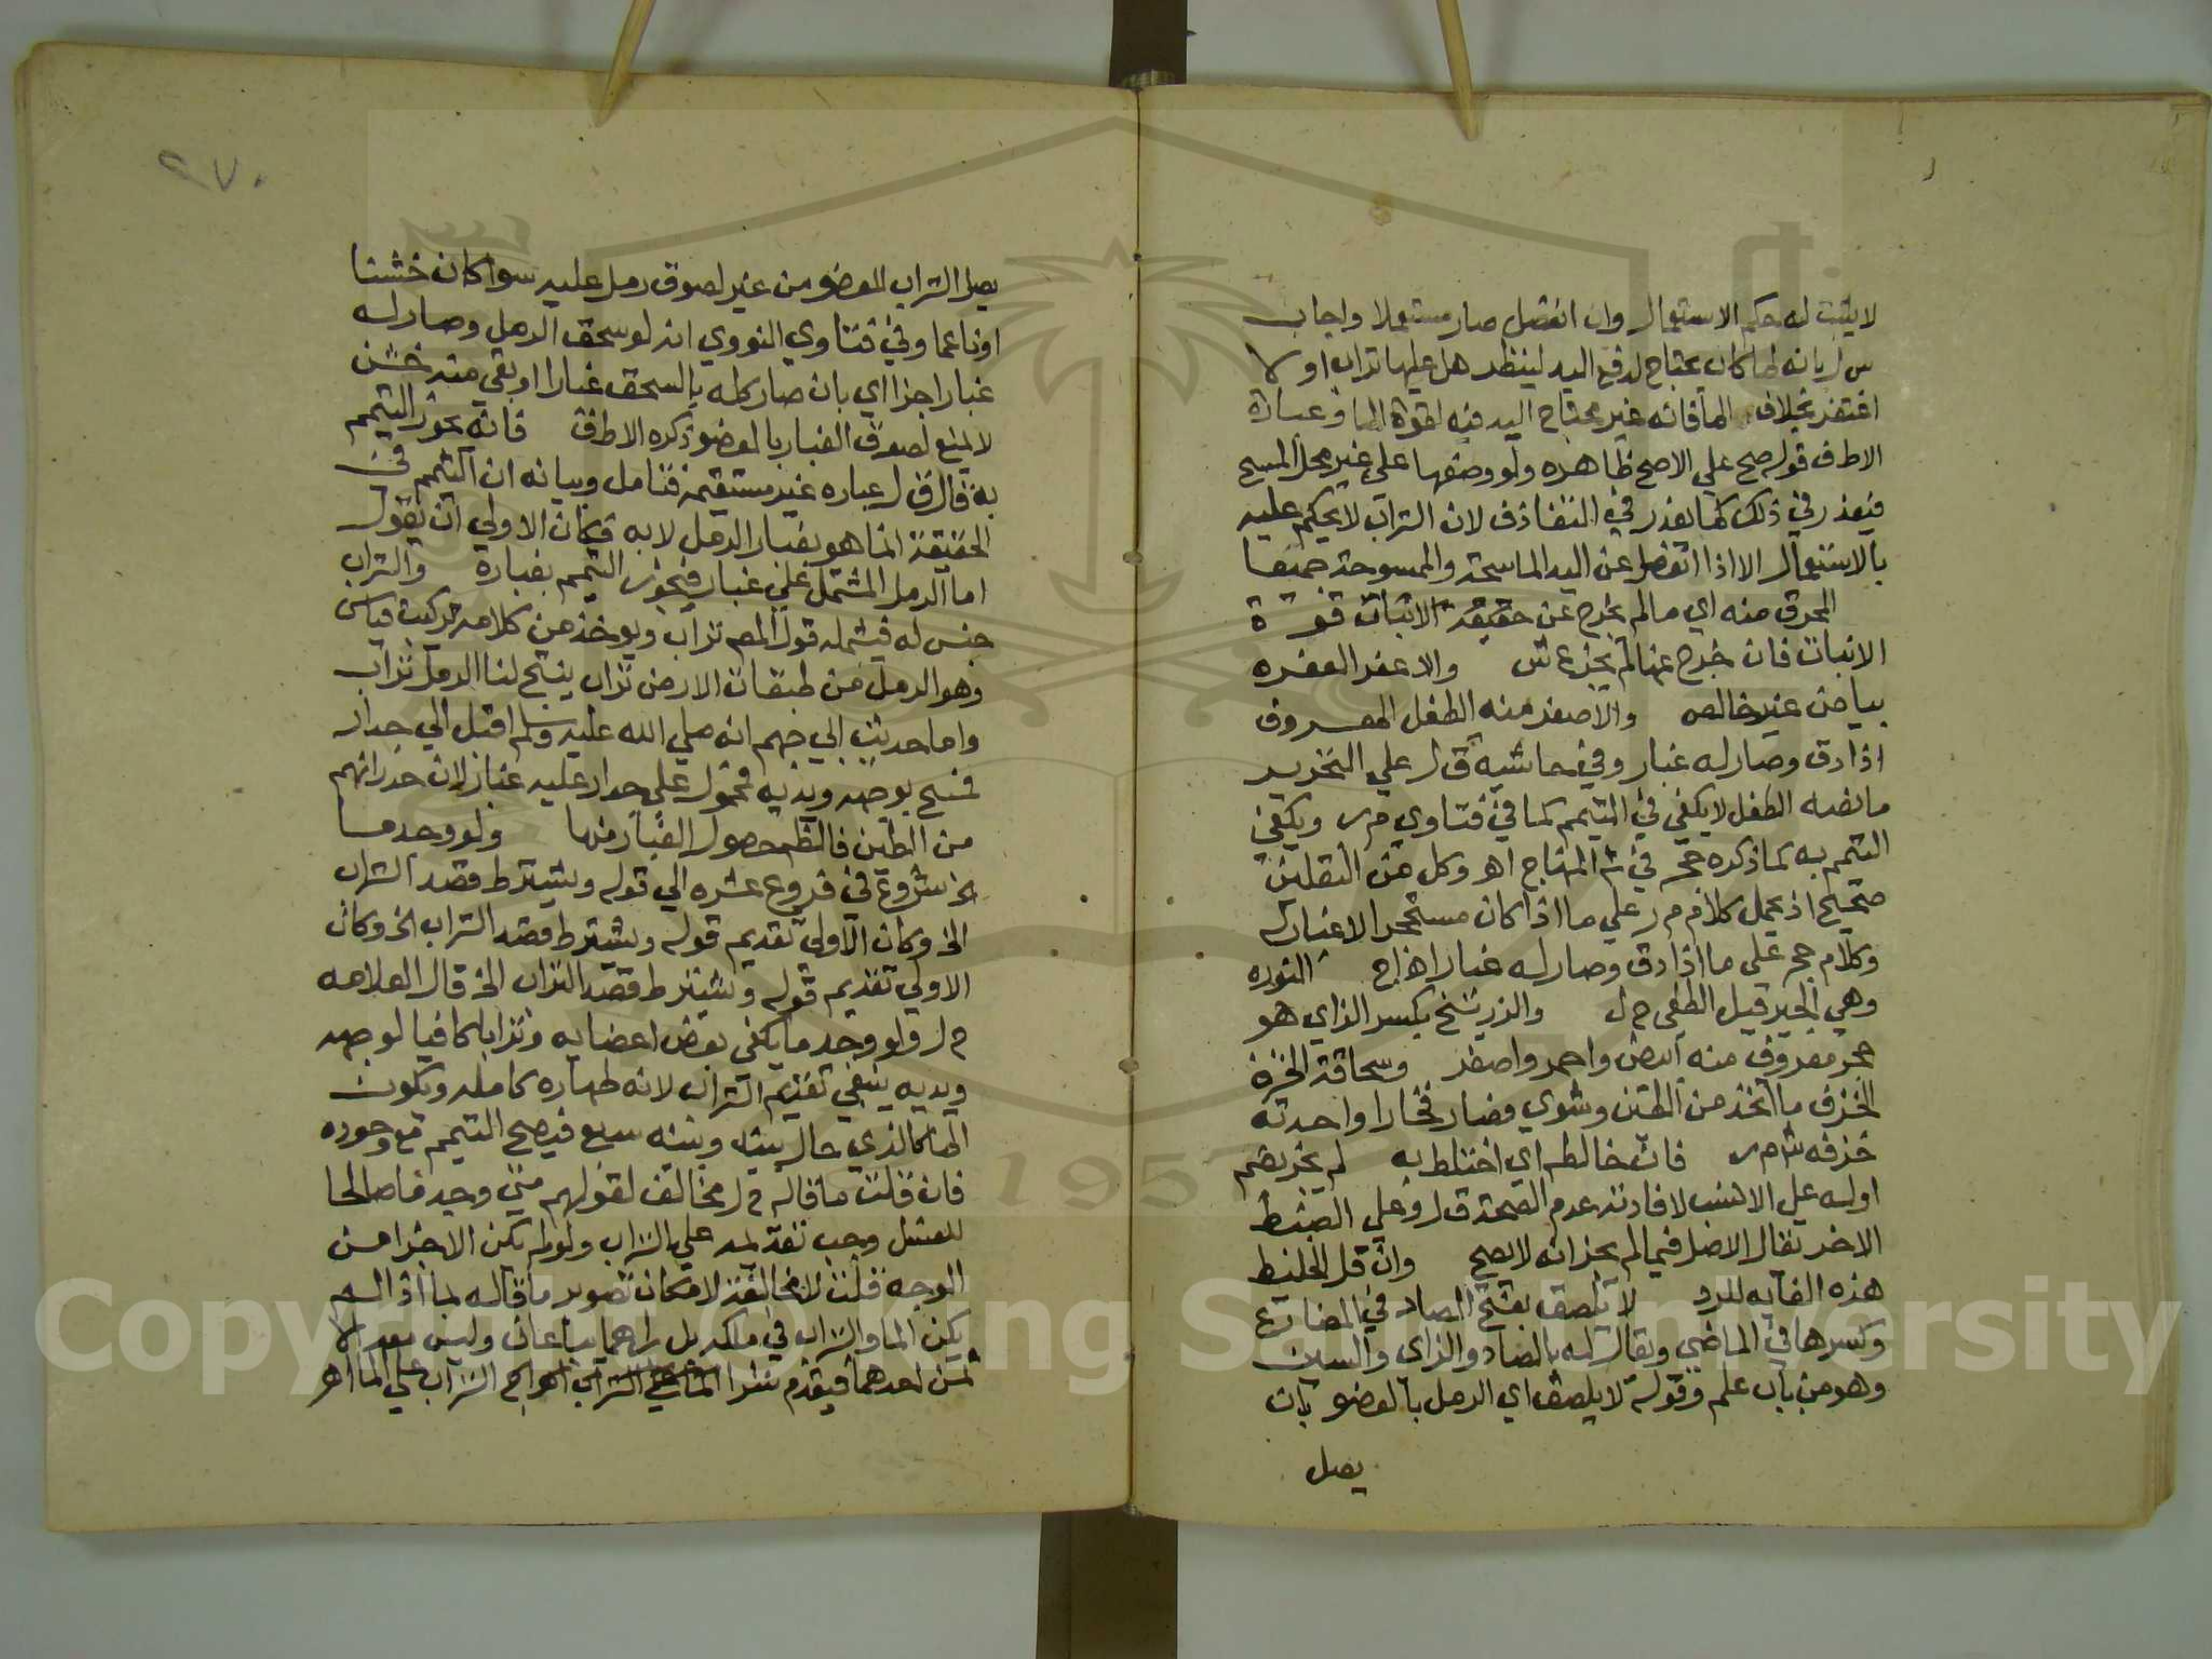 لا يثبت له حكم الاستعمال وان انفصل صار مستعملا واجاب
س ل بانه لما كان يحتاج لرفع اليد لينظر هل عليها تراب او لا
اغتفر بخلاف الما فانه غير محتاج اليه فيه لقوة الما وعبارة
الاطف قوله صح علي الاصح ظاهره ولو وضعها علي غير محل المسح
فيعذر في ذلك كما يعذر في التقاذف لان التراب لا يحكم عليه
بالاستعمال الا اذا انفصل عن اليد الماسحة والممسوحة جميعا
المحرق منه اي ما لم يخرج عن حقيقة الانبات قوة
الانبات فان خرج عنها لم يجز ع ش والاعفر العفره
بياض غير خالص والاصفر منه الطفل المعروف
اذا دق وصار له غبار وفي حاشيه ق ل علي التحرير
ما نصه الطفل لا يكفي في التيمم كما في فتاوي م ر ويكفي
التيمم به كما ذكره حجر في ش المنهاج اهـ وكل من النقلين
صحيح اذ يحمل كلام م ر علي ما اذا كان مستحجرا لا غبار له
وكلام حجر علي ما اذا دق وصار له غبار اهـ اج النوره
وهي الجير قبل الطفي ح ل والزرنيخ بكسر الزاي هو
حجر معروف منه ابيض واحمر واصفر وسحاقة الخزف
الخزف ما اتخذ من الطين وشوي فصار فخارا واحدته
خزفه ش م ر فان خالطه اي اختلط به لم يجز بضم
اوله علي الانسب لافادته عدم الصحة ق ل وعلي الضبط
الاخر يقال الاصل فيما لم يجز انه لا يصح وان قل الخليط
هذه الغايه للرد لا يلصق بفتح الصاد في المضارع
وكسرها في الماضي ويقال له بالصاد والزاي والسين
وهو من باب علم وقوله لا يلصق اي الرمل بالعضو بان
يصل
٢٧٠
يصل التراب للعضو من غير لصوق رمل عليه سوا كان خشنا
او ناعما وفي فتاوي النووي انه لو سحق الرمل وصار له
غبار اجزا اي بان صار كله بالسحق غبارا او بقي منه خشن
لا يمنع لصوق الغبار بالعضو ذكره الاطف فانه يجوز التيمم
به قال ق ل عباره غير مستقيمة فتامل وبيانه ان التيمم في
الحقيقة انما هو بغبار الرمل لا به فكان الاولي ان يقول
اما الرمل المشتمل علي غبار فيجوز التيمم بغباره والتراب
جنس له فيشمله قول المص تراب ويوخذ من كلامه تركيب قياس
وهو الرمل من طبقات الارض تراب ينتج لنا الرمل تراب
واما حديث ابي جهم انه صلي الله عليه وسلم اقبل الي جدار
فمسح بوجهه ويديه فمحمول علي جدار عليه غبار لان جدرانهم
من الطين فالظ حصول الغبار منها ولو وجد ما
الخ شروع في فروع عشره الي قوله ويشترط قصد التراب
الخ وكان الاولي تقديم قوله ويشترط قصد التراب الخ وكان
الاولي تقديم قوله ويشترط قصد التراب الخ قال العلامه
ح ل ولو وجد ما يكفي بعض اعضايه وترابا كافيا لوجهه
ويديه ينبغي تقديم التراب لانه طهاره كامله ويكون
الما كالذي حال بينه وبينه سبع فيصح التيمم مع وجوده
فان قلت ما قاله ح ل مخالف لقولهم متي وجد ما صالحا
للغسل وجب تقديمه علي التراب ولو لم يكن الا جزا من
الوجه قلت لا مخالفة لامكان تصوير ما قاله بما اذا لم
يكن الما والتراب في ملكه بل راهما يباعان وليس معه الا
ثمن احدهما فيقدم شرا التراب علي الما اهـ